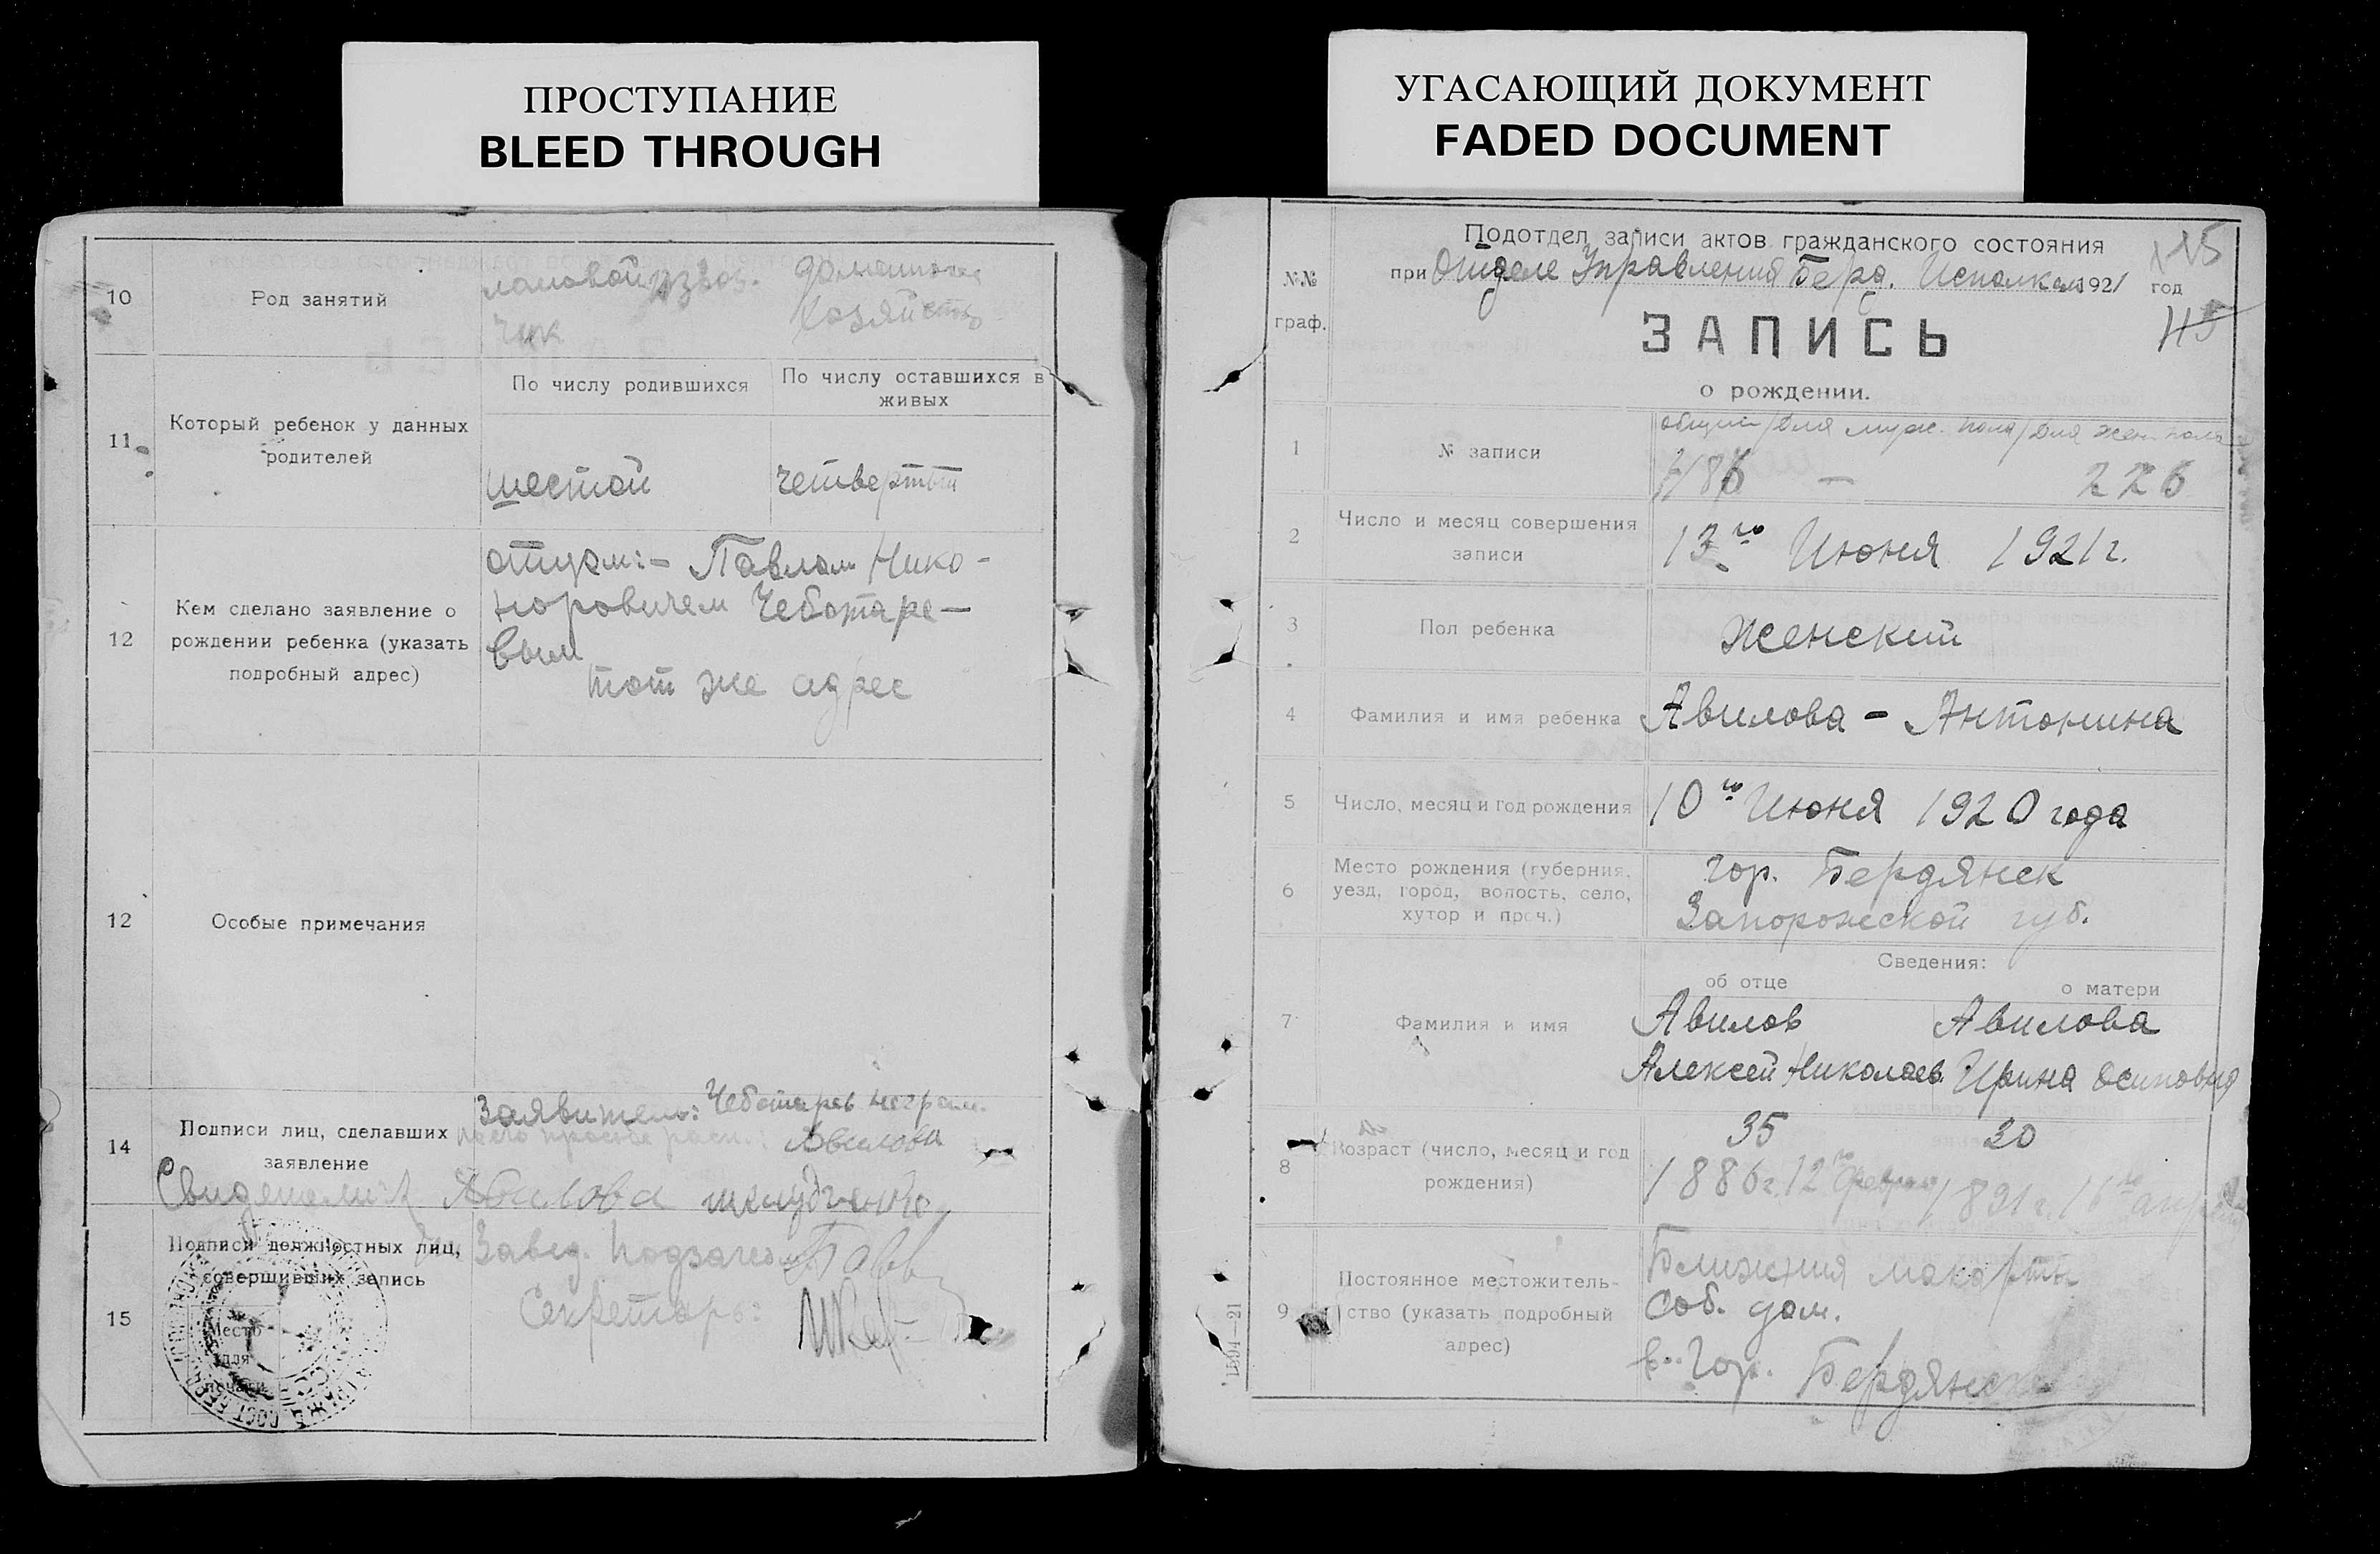 ПРОСТУПАНИЕ
BLEED THROUGH
10
Род занятий
ломовой извоз-
чик
домашнее
хозяйство
11
Который ребенок у данных
родителей
По числу родившихся
По числу оставшихся в
живых
шестой
четвертый
12
Кем сделано заявление о
рождении ребенка (указать
подробный адрес)
отцом:- Павлом Нико-
норовичем Чеботаре-
вым
тот же адрес
12
Особые примечания
14
Подписи лиц, сделавших
заявление
Заявитель: Чеботарев неграм.
Авилова
Свидетели Авилова
15
Подписи должностных лиц,
совершивших запись
Место
для
печати
Завед. Подзагсом
Секретарь:
УГАСАЮЩИЙ ДОКУМЕНТ
FADED DOCUMENT
№№
граф.
Подотдел записи актов гражданского состояния
при Отделе Управления Берд. Исполкома 1921 год
115
115
ЗАПИСЬ
о рождении.
1
№ записи
общий/для муж. пола/для жен. пола
— 226
2
Число и месяц совершения
записи
13го Июня 1921 г.
3
Пол ребенка
Женский
4
Фамилия и имя ребенка
Авилова - Антонина
5
Число, месяц и год рождения
10го Июня 1920 года
6
Место рождения (губерния,
уезд, город, волость, село,
хутор и проч.)
гор. Бердянск
Запорожской губ.
Сведения:
об отце
о матери
7
Фамилия и имя
Авилов
Алексей Николаев.
Авилова
Ирина Осиповна
8
Возраст (число, месяц и год
рождения)
35
1886г. 12го февраля
30
1891 г. 16го апреля
9
Постоянное местожитель-
ство (указать подробный
адрес)
Ближния макорты
Соб. дом.
в гор. Бердянске
1594—21